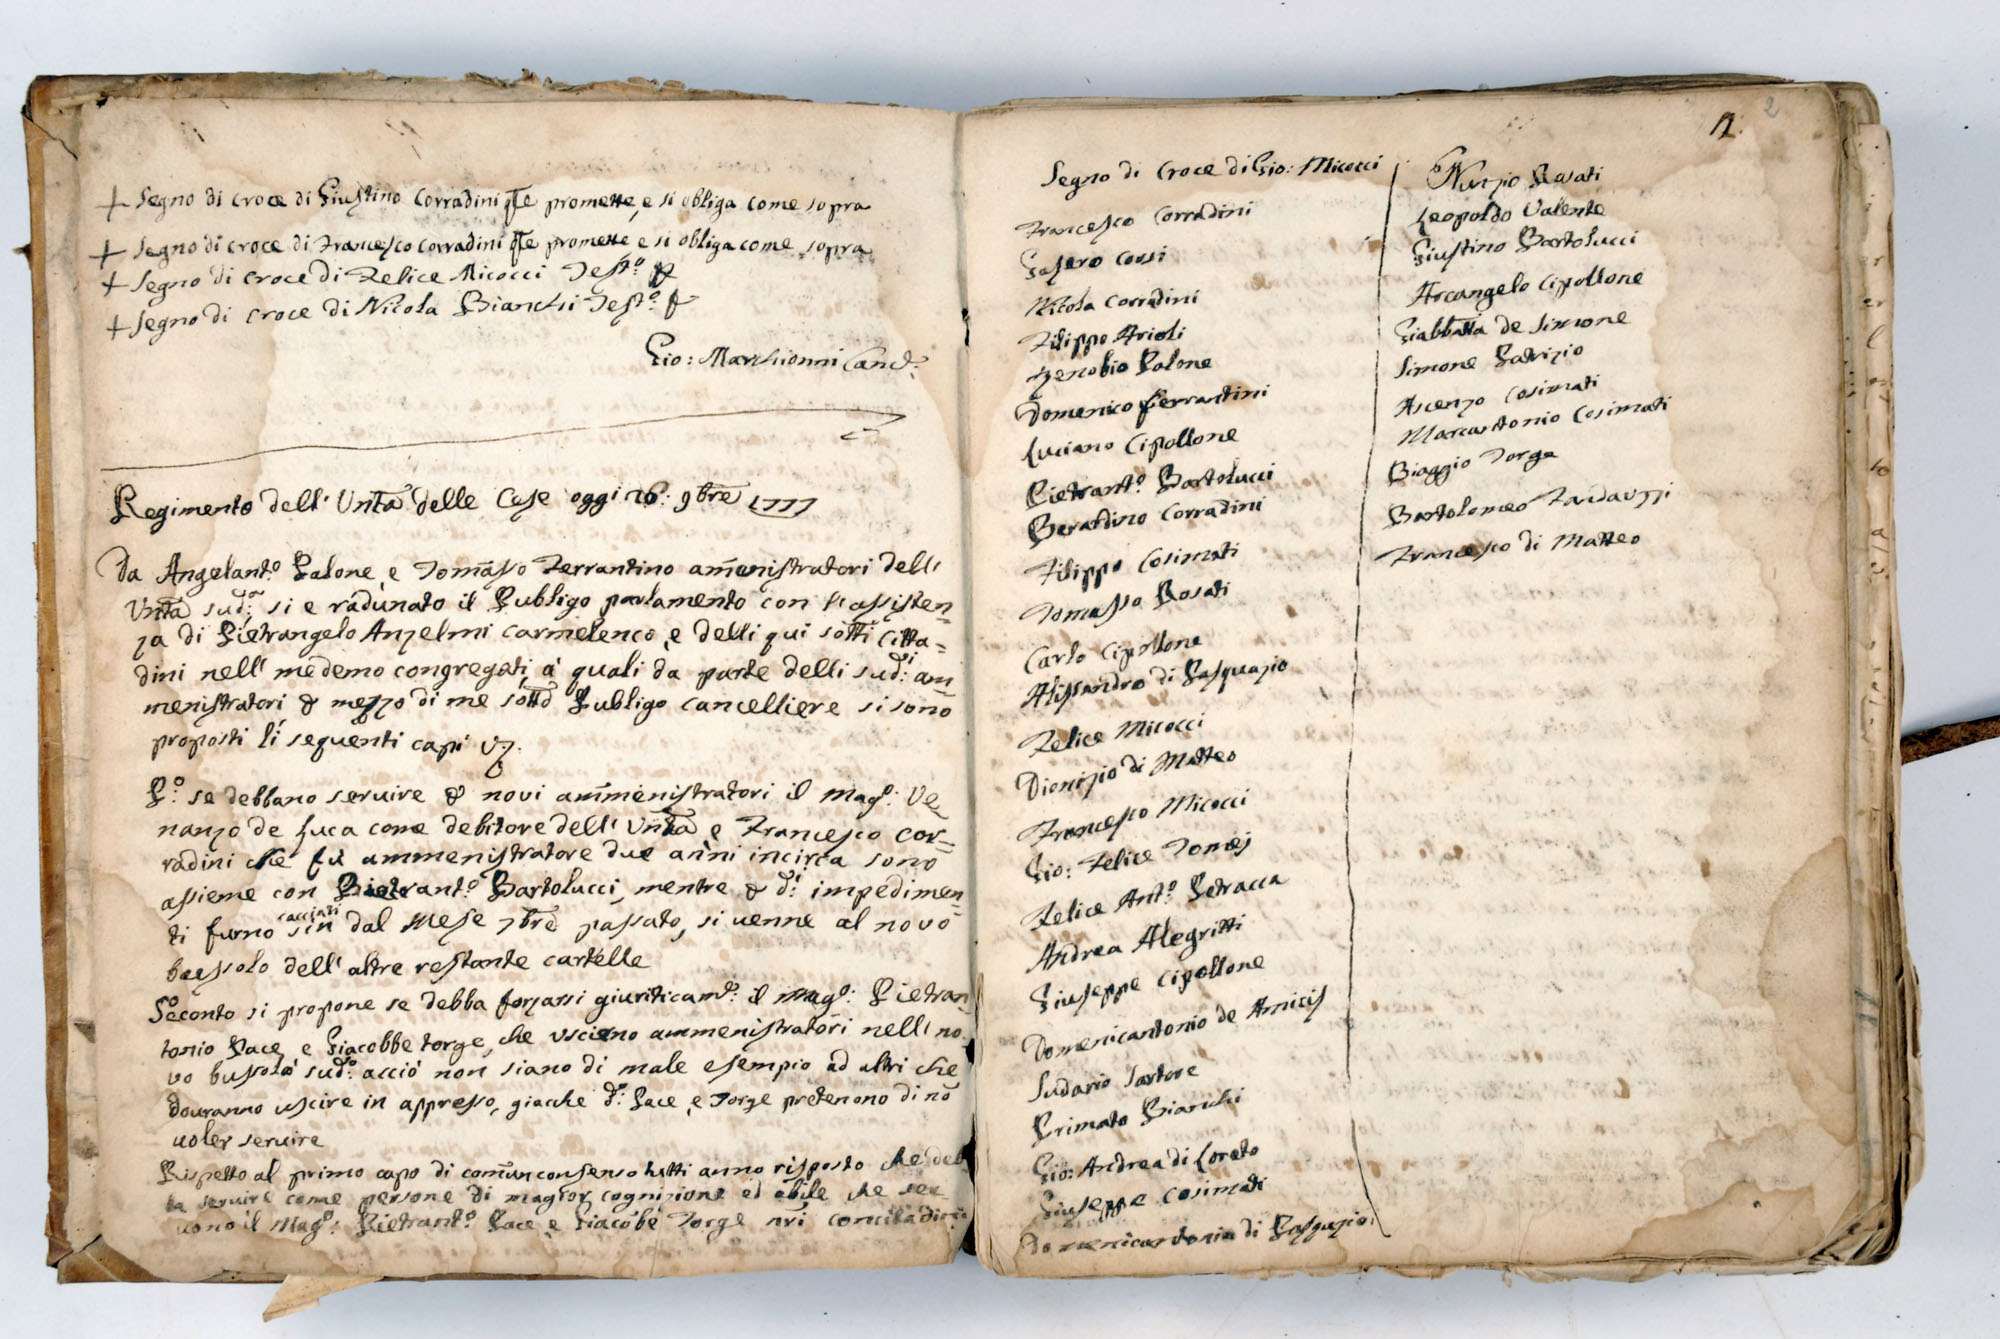 + Segno di croce di Giustino Corradini qle promette, e si obliga come sopra
+ Segno di croce di Francesco Corradini qle promette e si obliga come sopra
+ Segno di croce di Felice Micocci Testo
+ Segno di croce di Nicola Bianchi Testo
Gio: Marchionni Canc.e
Regimento dell' Unta delle Case oggi 16: 9bre 1777
Da Angelanto: Palone, e Tomasso Ferrantino amenistratori dell'
Unta sud:a si e radunato il Publigo parlamento con l'assisten=
za di Pietrangelo Anzelmi carmelenco, e delli qui sotti citta=
dini nell' medemo congregati, a' quali da parte delli sud:i am=
menistratori & mezzo di me sotto Publigo cancelliere si sono
proposti li seguenti capi vz.
P:o se debbano servire & novi ammenistratori il mag:o Ve=
nanzo de Luca come debitore dell' Unta e Francesco Cor=
radini che fu ammenistratore due anni incirca sono
assieme con Pietrant:o Bartolucci, mentre & d:i impedimen=
ti furno cacciati sin dal Mese 7bre passato, si venne al novo
bussolo dell' altre restante cartelle
Seconto si propone se debba forzarsi giuriticam:e il mag:o Pietran=
tonio Pace, e Giacobbe Torge, che uscieno ammenistratori nell' no
vo bussolo sud:o acciò non siano di male esempio ad altri che
douranno uscire in appresso, giacche d:i Pace, e Torge pretenono di nō
uoler servire
Rispetto al primo capo di comun consenso tutti anno risposto che deb
ba servire come persone di magior cognizione ed abile che ser
uono il Mag:o Pietrant:o Pace, e Giacobe Torge nri concitadini
2
Segno di Croce di Gio: Micocci
Francesco Corradini
Gasero Corsi
Nicola Corradini
Filippo Arioli
Zenobio Palone
Domenico Ferrantini
Luciano Cipollone
Pietrant:o Bartolucci
Berardino Corradini
Filippo Cosimati
Tomasso Rosati
Carlo Cipollone
Alissandro di Pasquazio
Felice Micocci
Dionizio di Matteo
Francesco Micocci
Gio: Felice Tomei
Felice Ant:o Petracca
Andrea Alegritti
Giuseppe Cipollone
Domenicantonio de Amicis
Sudario Sartore
Primato Bianchi
Gio: Andrea di Loreto
Giuseppe Cosimati
Domenicantonio di Pasquazio
Nunzio Rosati
Leopoldo Valente
Giustino Bartolucci
Arcangelo Cipollone
Giabbatta de Simone
Simone Patrizio
Ascenzo Cosimati
Marcantonio Cosimati
Biaggio Torge
Bartolomeo Fandauzzi
Francesco di Matteo